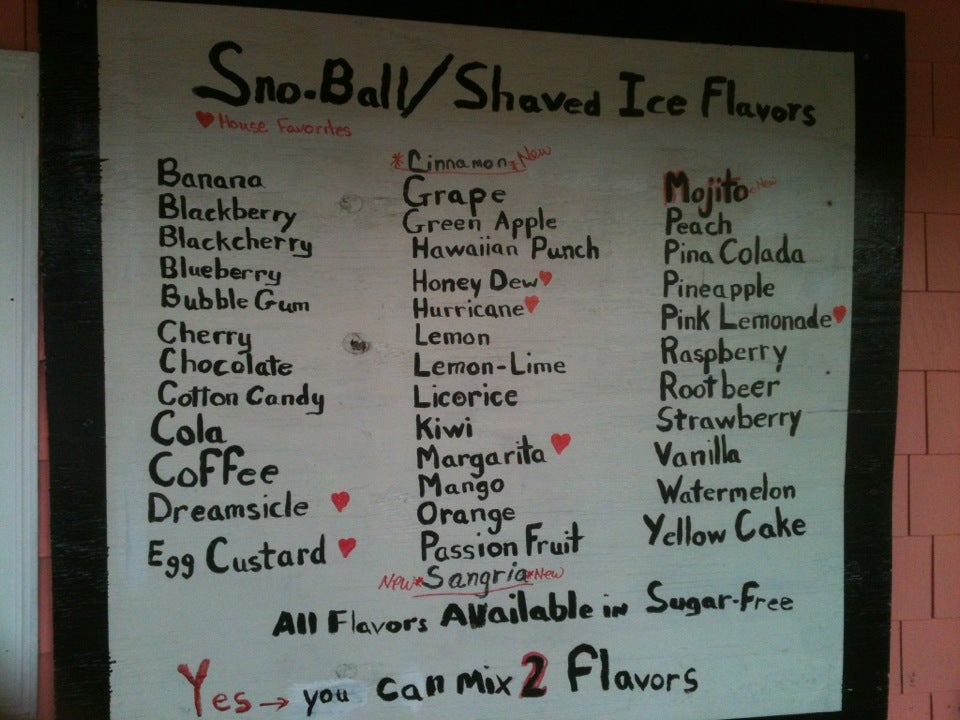 Sno-Ball/Shaved Ice Flavors
♥ House Favorites
Banana
Blackberry
Blackcherry
Blueberry
Bubble Gum
Cherry
Chocolate
Cotton Candy
Cola
Coffee
Dreamsicle ♥
Egg Custard ♥
*Cinnamon* New
Grape
Green Apple
Hawaiian Punch
Honey Dew ♥
Hurricane ♥
Lemon
Lemon-Lime
Licorice
Kiwi
Margarita ♥
Mango
Orange
Passion Fruit
New *Sangria* New
Mojito New
Peach
Pina Colada
Pineapple
Pink Lemonade ♥
Raspberry
Rootbeer
Strawberry
Vanilla
Watermelon
Yellow Cake
All Flavors Available in Sugar-Free
Yes → you can mix 2 Flavors